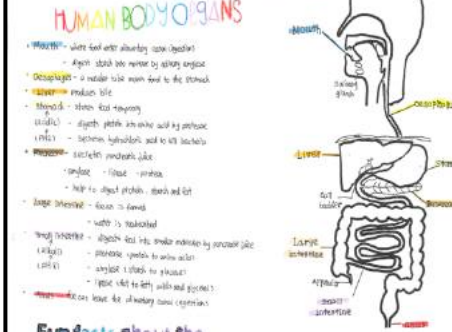 HUMAN BODY ORGANS
Mouth - where food enter alimentary canal (ingestion)
- digest starch into maltose by salivary amylase
Oesophagus - a muscular tube move food to the stomach
Liver - produces bile
Stomach - stores food temporary
(acidic) - digests protein into amino acid by protease
(pH2) - secretes hydrochloric acid to kill bacteria
- secretes pancreatic juice
- amylase - lipase - protease
- help to digest protein, starch and fat
Large intestine - faeces is formed
- water is reabsorbed
Small intestine - digests food into smaller molecules by pancreatic juice
- protease : protein to amino acids
- amylase : starch to glucose
- lipase : fat to fatty acids and glycerol
leave the alimentary canal (egestion)
Fun facts about the
Mouth
Salivary gland
Oesophag
Liver
Stom
Gall bladder
Large intestine
Appendix
Small intestine